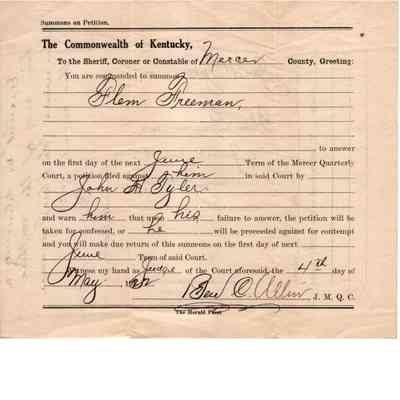 Summons on Petition.
The Commonwealth of Kentucky,
To the Sheriff, Coroner or Constable of Mercer County, Greeting:
You are commanded to summon
Flem Freeman,
to answer
on the first day of the next June Term of the Mercer Quarterly
Court, a petition filed against him in said Court by
John H Tyler
and warn him that upon his failure to answer, the petition will be
taken for confessed, or he will be proceeded against for contempt
and you will make due return of this summons on the first day of next
June Term of said Court.
Witness my hand as Judge of the Court aforesaid, the 4th day of
May Ben C. Allin J. M. Q. C.
The Herald Press